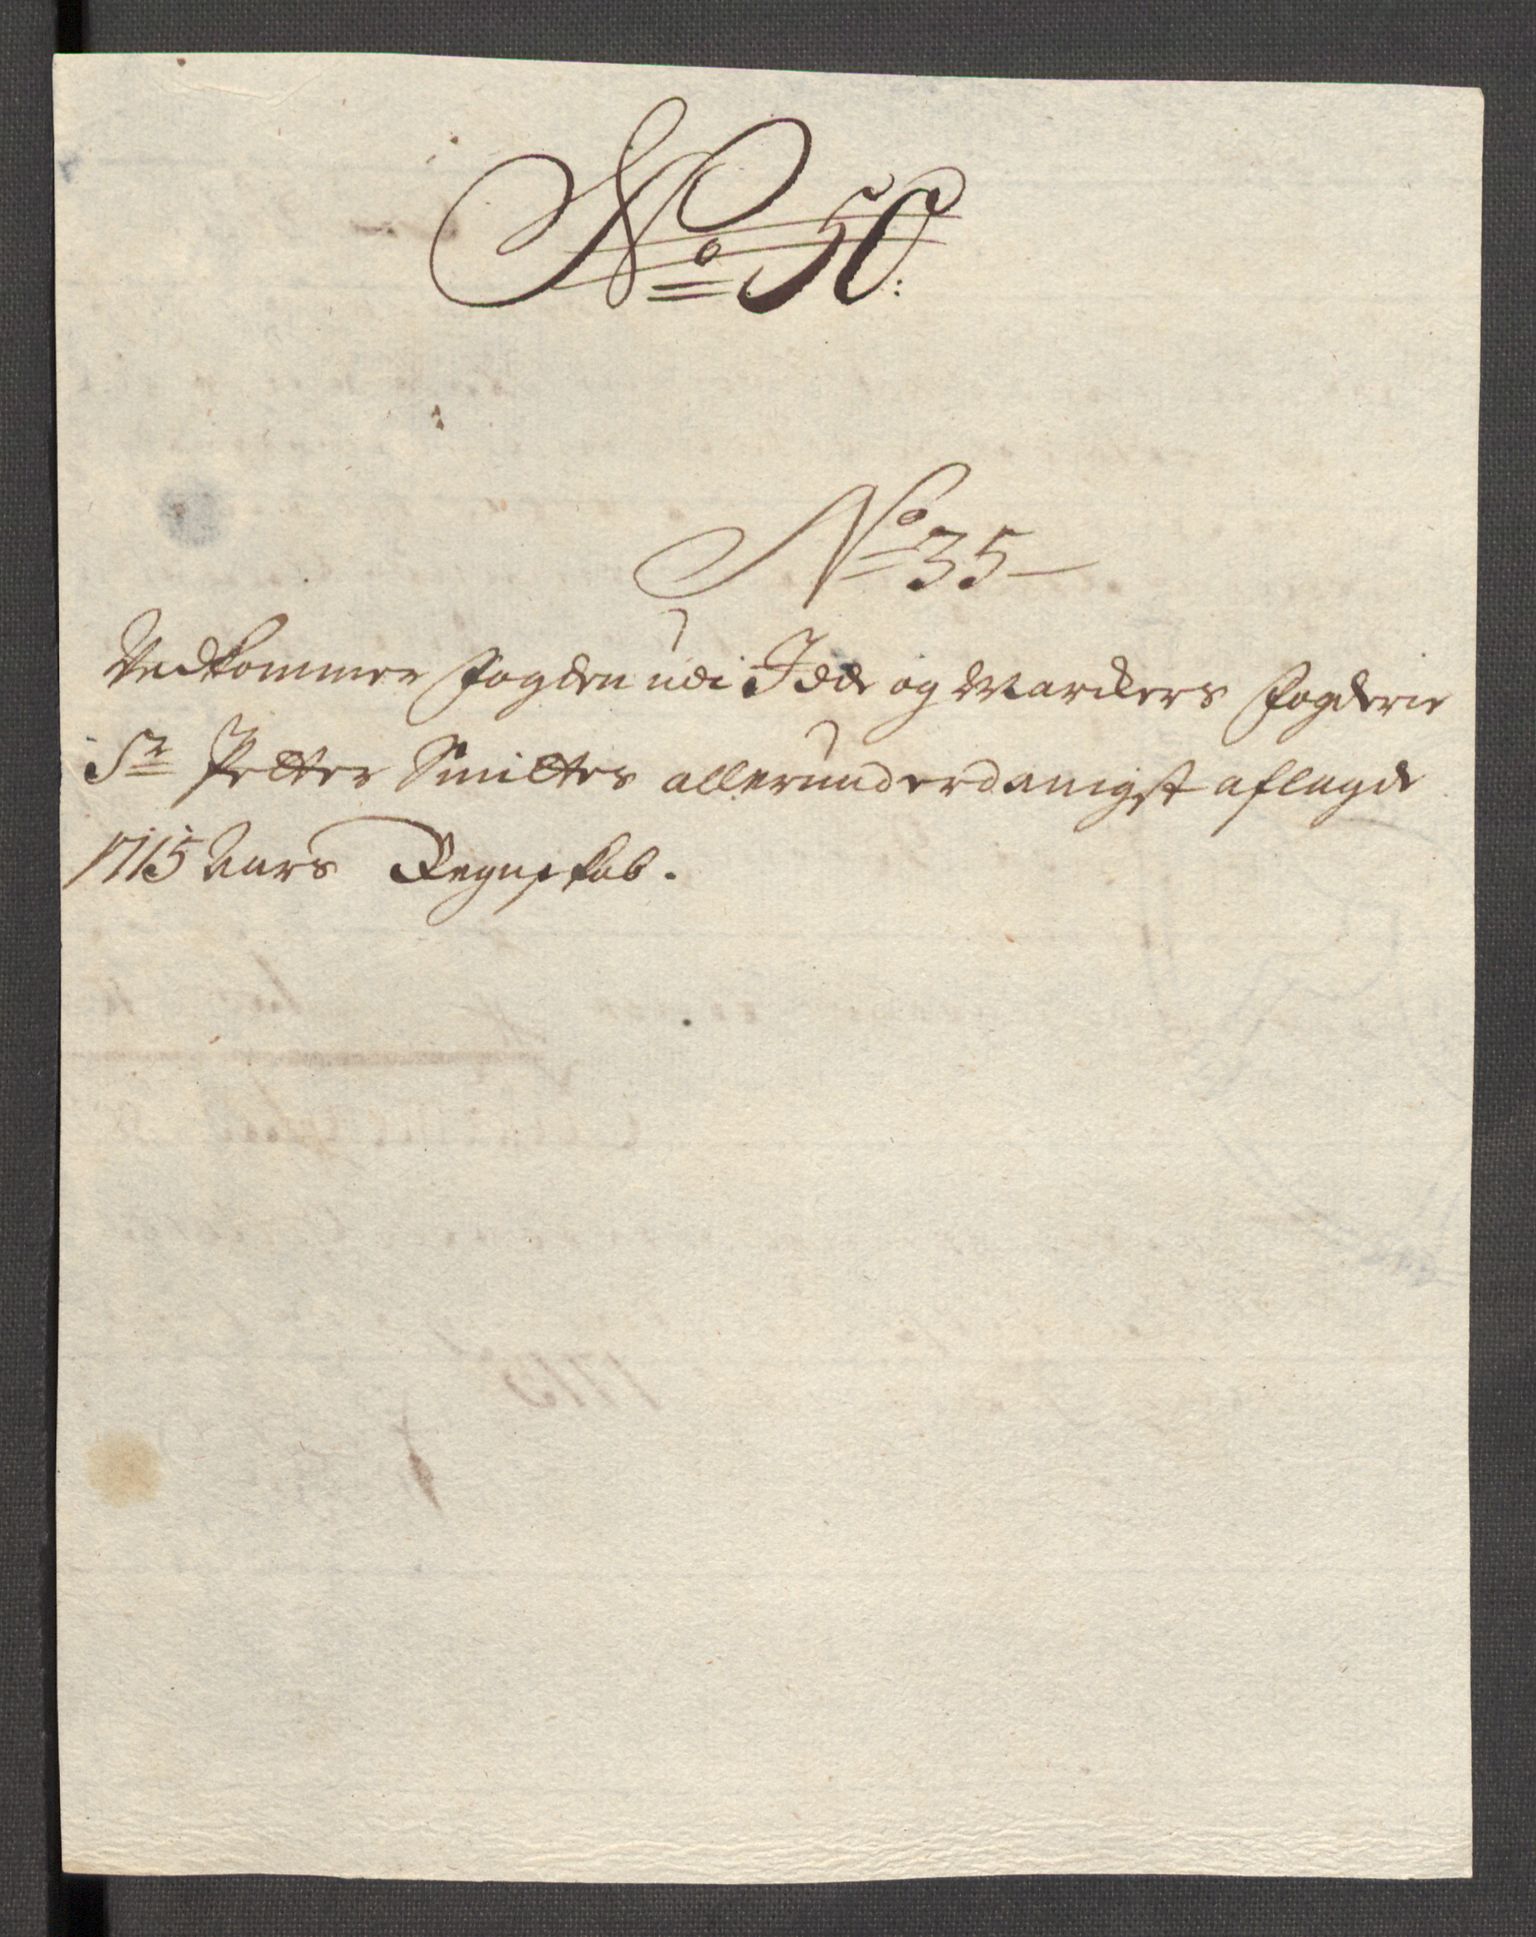 No 50:
No 35
Vedkommer Fogden udi Idde og Marckers Fogderie
Sr Petter Smittes allerunderdanigst aflagde
1715 Aars Regnskab.